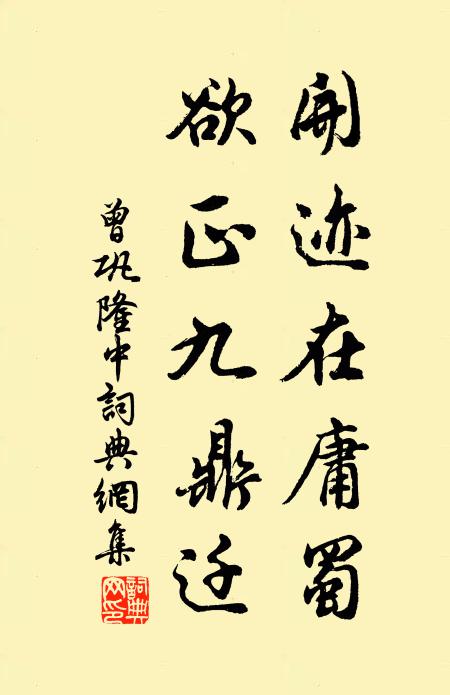 開迹在庸蜀
欲正九鼎迁
曾巩隆中詞典網集
詞典网印